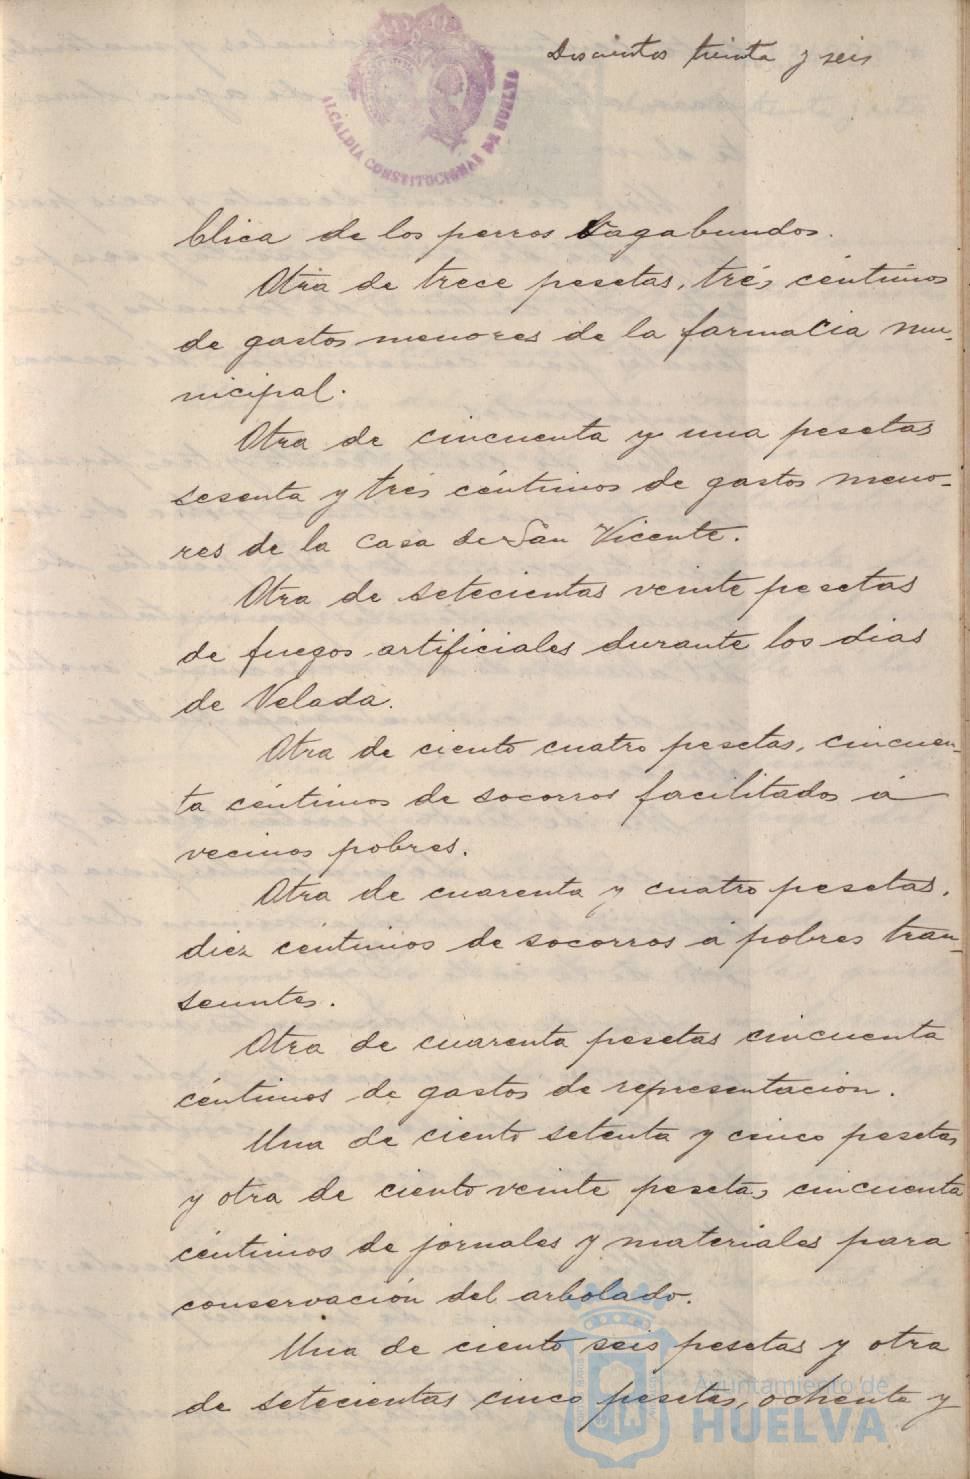 Doscientos treinta y seis
ALCALDIA CONSTITUCIONAL DE HUELVA
blica de los perros vagabundos.
Otra de trece pesetas, tres céntimos
de gastos menores de la farmacia mu-
nicipal.
Otra de cincuenta y una pesetas
sesenta y tres céntimos de gastos meno-
res de la Casa de San Vicente.
Otra de setecientas veinte pesetas
de fuegos artificiales durante los dias
de Velada.
Otra de ciento cuatro pesetas, cincuen-
ta céntimos de socorros facilitados á
vecinos pobres.
Otra de cuarenta y cuatro pesetas,
diez céntimos de socorros á pobres tran-
seuntes.
Otra de cuarenta pesetas cincuenta
céntimos de gastos de representación.
Una de ciento setenta y cinco pesetas
y otra de ciento veinte pesetas cincuenta
céntimos de jornales y materiales para
conservación del arbolado.
Una de ciento seis pesetas y otra
de setecientas cinco pesetas, ochenta y
Ayuntamiento de
HUELVA